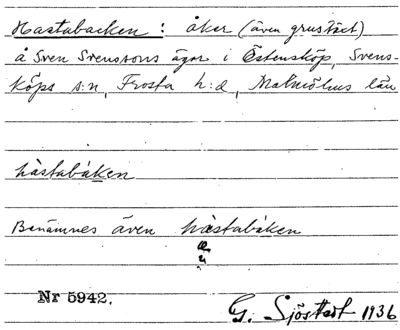 Hastabacken : åker (även grustäct)
å Sven Svenssons ägor i Östensköp, Svens-
köps s:n, Frosta h:d, Malmöhus län
hàstabáken
Benämnes även hàstabáken
Nr 5942.
G. Sjöstedt 1936